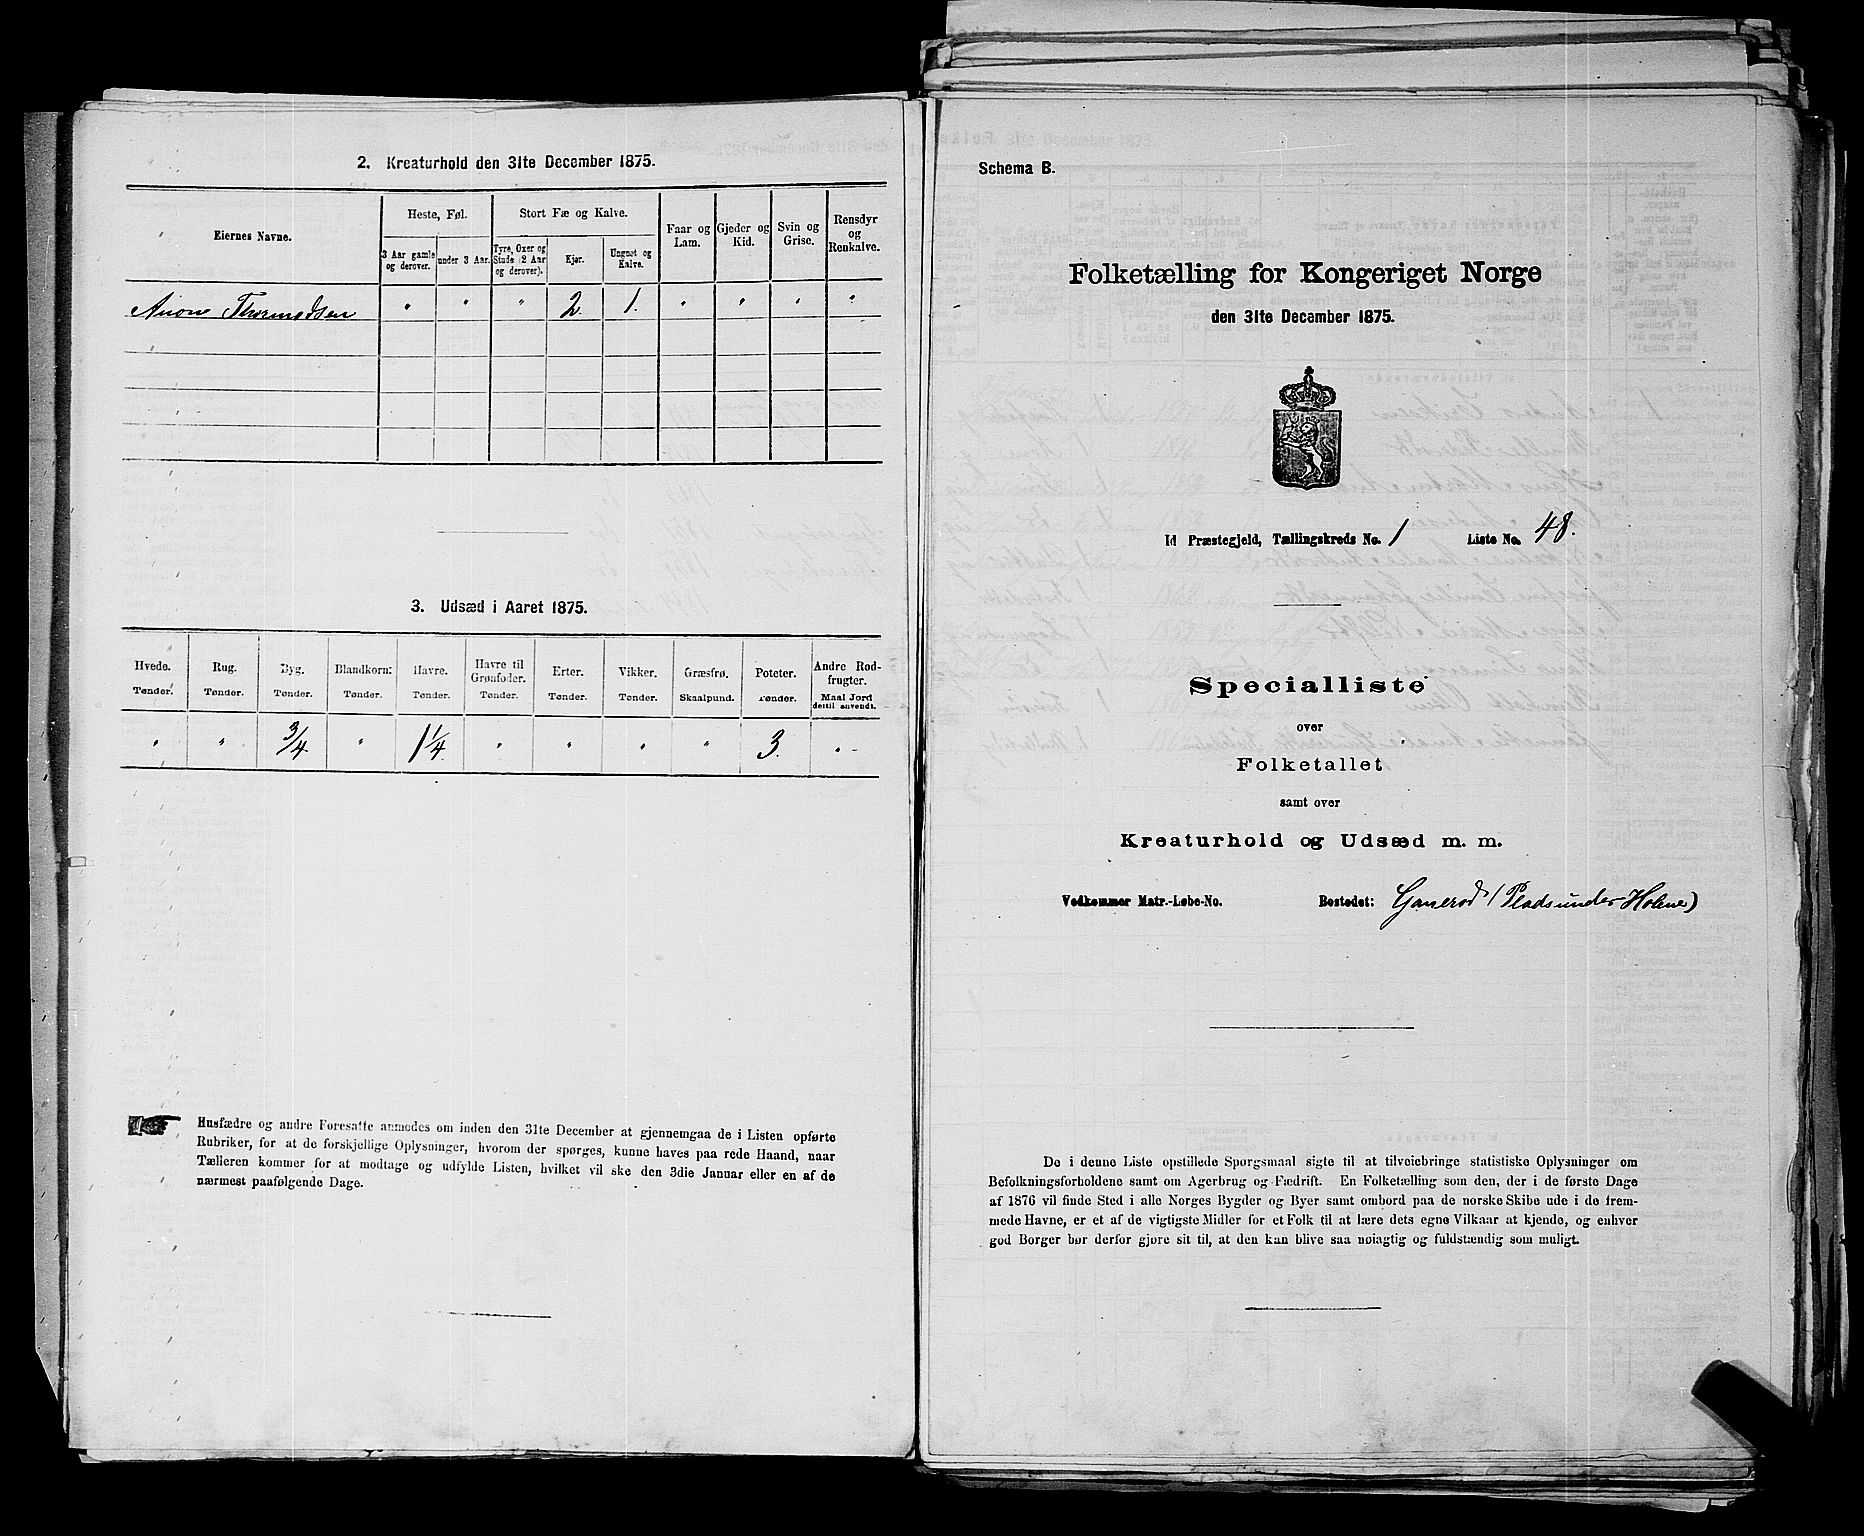 2. Kreaturhold den 31te December 1875.
Eiernes Navne.
Heste, Føl.
Stort Fæ og Kalve.
Faar og Lam.
Gjeder og Kid.
Svin og Grise.
Rensdyr og Renkalve.
3 Aar gamle og derover.
under 3 Aar.
Tyre, Oxer og Stude (2 Aar og derover).
Kjør.
Ungnøt og Kalve.
Thormodsen " " " 2. 1. " " " "
3. Udsæd i Aaret 1875.
Hvede. Rug. Byg. Blandkorn. Havre. Havre til Grønfoder. Erter. Vikker. Græsfrø. Poteter. Andre Rodfrugter.
Tønder. Tønder. Tønder. Tønder. Tønder. Tønder. Tønder. Tønder. Skaalpund. Tønder. Maal Jord dertil anvendt.
" " 3/4 " 1 1/4 " " " " 3. "
Husfædre og andre Foresatte anmodes om inden den 31te December at gjennemgaa de i Listen opførte
Rubriker, for at de forskjellige Oplysninger, hvorom der spørges, kunne haves paa rede Haand, naar
Tælleren kommer for at modtage og udfylde Listen, hvilket vil ske den 3die Januar eller en af de
nærmest paafølgende Dage.
Schema B.
Folketælling for Kongeriget Norge
den 31te December 1875.
Id Præstegjeld, Tællingskreds No. 1 Liste No. 48.
Specialliste
over
Folketallet
samt over
Kreaturhold og Udsæd m. m.
Vedkommer Matr.-Løbe-No. Bostedet: Ganerød (Plads under Holene)
De i denne Liste opstillede Spørgsmaal sigte til at tilveiebringe statistiske Oplysninger om
Befolkningsforholdene samt om Agerbrug og Fædrift. En Folketælling som den, der i de første Dage
af 1876 vil finde Sted i alle Norges Bygder og Byer samt ombord paa de norske Skibe ude i de frem-
mede Havne, er et af de vigtigste Midler for et Folk til at lære dets egne Vilkaar at kjende, og enhver
god Borger bør derfor gjøre sit til, at den kan blive saa nøiagtig og fuldstændig som muligt.